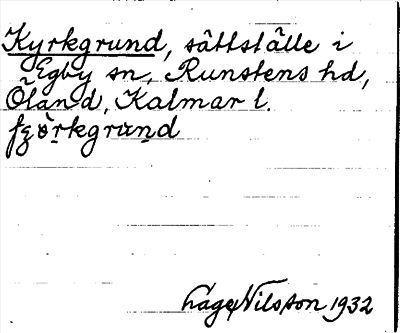 Kyrkgrund, såttställe i
Egby sn, Runstens hd,
Öland, Kalmar l.
Hage Nilsson 1932